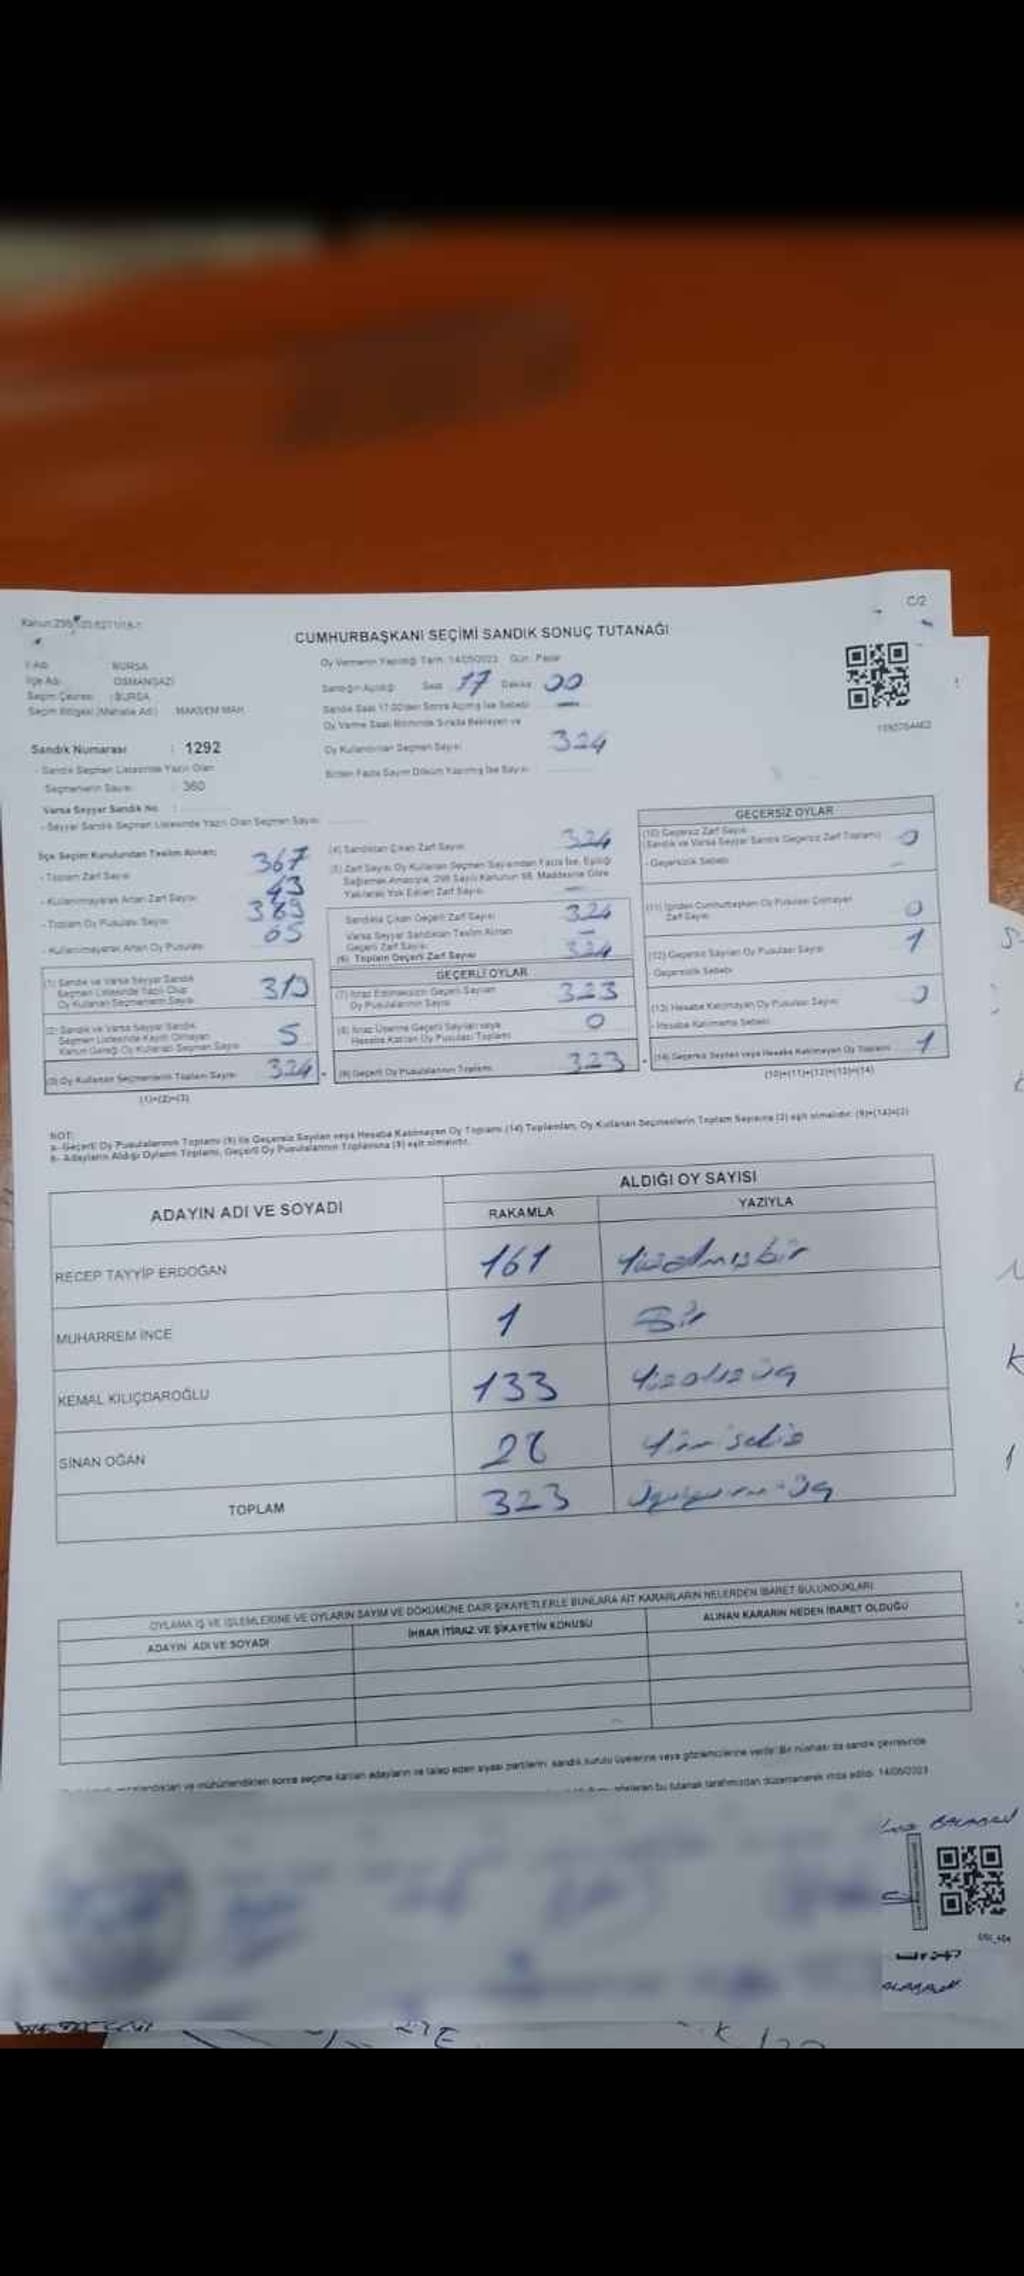 C/2
CUMHURBAŞKANI SEÇİMİ SANDIK SONUÇ TUTANAĞI
İl Adı : BURSA
İlçe Adı : OSMANGAZİ
Seçim Çevresi : BURSA
Seçim Bölgesi (Mahalle Adı) : MAKSEM MAH.
Oy Vermenin Yapıldığı Tarih: 14/05/2023 Gün: Pazar
Sandığın Açıldığı Saat 17 Dakika 00
Sandık Saat 17.00'den Sonra Açılmış İse Sebebi
Oy Verme Saati Bitiminde Sırada Bekleyen ve
Oy Kullandırılan Seçmen Sayısı 324
Birden Fazla Sayım Döküm Yapılmış İse Sayısı
Sandık Numarası : 1292
- Sandık Seçmen Listesinde Yazılı Olan
Seçmenlerin Sayısı : 360
Varsa Seyyar Sandık No :
- Seyyar Sandık Seçmen Listesinde Yazılı Olan Seçmen Sayısı
İlçe Seçim Kurulundan Teslim Alınan;
- Toplam Zarf Sayısı 367
- Kullanılmayarak Artan Zarf Sayısı 43
- Toplam Oy Pusulası Sayısı
- Kullanılmayarak Artan Oy Pusulası 65
(1) Sandık ve Varsa Seyyar Sandık
Seçmen Listesinde Yazılı Olup
Oy Kullanan Seçmenlerin Sayısı
(2) Sandık ve Varsa Seyyar Sandık
Seçmen Listesinde Kayıtlı Olmayan
Kanun Gereği Oy Kullanan Seçmen Sayısı 5
(3) Oy Kullanan Seçmenlerin Toplam Sayısı 324
(1)+(2)=(3)
(4) Sandıktan Çıkan Zarf Sayısı 324
(5) Zarf Sayısı Oy Kullanan Seçmen Sayısından Fazla İse, Eşitliği
Sağlamak Amacıyla, 298 Sayılı Kanunun 98. Maddesine Göre
Yakılarak Yok Edilen Zarf Sayısı
Sandıkta Çıkan Geçerli Zarf Sayısı 324
Varsa Seyyar Sandıktan Teslim Alınan
Geçerli Zarf Sayısı
(6) Toplam Geçerli Zarf Sayısı 324
GEÇERLİ OYLAR
(7) İtiraz Edilmeksizin Geçerli Sayılan
Oy Pusulalarının Sayısı 323
(8) İtiraz Üzerine Geçerli Sayılan veya
Hesaba Katılan Oy Pusulası Toplamı 0
(9) Geçerli Oy Pusulalarının Toplamı 323
GEÇERSİZ OYLAR
(10) Geçersiz Zarf Sayısı
(Sandık ve Varsa Seyyar Sandık Geçersiz Zarf Toplamı) 0
- Geçersizlik Sebebi
(11) İçinden Cumhurbaşkanı Oy Pusulası Çıkmayan
Zarf Sayısı 0
(12) Geçersiz Sayılan Oy Pusulası Sayısı 1
- Geçersizlik Sebebi
(13) Hesaba Katılmayan Oy Pusulası Sayısı 0
- Hesaba Katılmama Sebebi
(14) Geçersiz Sayılan veya Hesaba Katılmayan Oy Toplamı 1
(10)+(11)+(12)+(13)=(14)
NOT:
a- Geçerli Oy Pusulalarının Toplamı (9) ile Geçersiz Sayılan veya Hesaba Katılmayan Oy Toplamı (14) Toplamları, Oy Kullanan Seçmenlerin Toplam Sayısına (3) eşit olmalıdır. (9)+(14)=(3)
b- Adayların Aldığı Oyların Toplamı, Geçerli Oy Pusulalarının Toplamına (9) eşit olmalıdır.
ADAYIN ADI VE SOYADI
ALDIĞI OY SAYISI
RAKAMLA YAZIYLA
RECEP TAYYİP ERDOĞAN 161 Yüzatmışbir
MUHARREM İNCE 1 Bir
KEMAL KILIÇDAROĞLU 133 Yüzotuzüç
SİNAN OĞAN 28 Yirmisekiz
TOPLAM 323 Üçyüzyirmiüç
OYLAMA İŞ VE İŞLEMLERİNE VE OYLARIN SAYIM VE DÖKÜMÜNE DAİR ŞİKAYETLERLE BUNLARA AİT KARARLARIN NELERDEN İBARET BULUNDUKLARI
ADAYIN ADI VE SOYADI
İHBAR İTİRAZ VE ŞİKAYETİN KONUSU
ALINAN KARARIN NEDEN İBARET OLDUĞU
mühürlendikten sonra seçime katılan adayların ve talep eden siyasi partilerin, sandık kurulu üyelerine veya gözlemcilerine verilir. Bir nüshası da sandık çevresinde
bu tutanak tarafımızdan düzenlenerek imza edildi. 14/05/2023